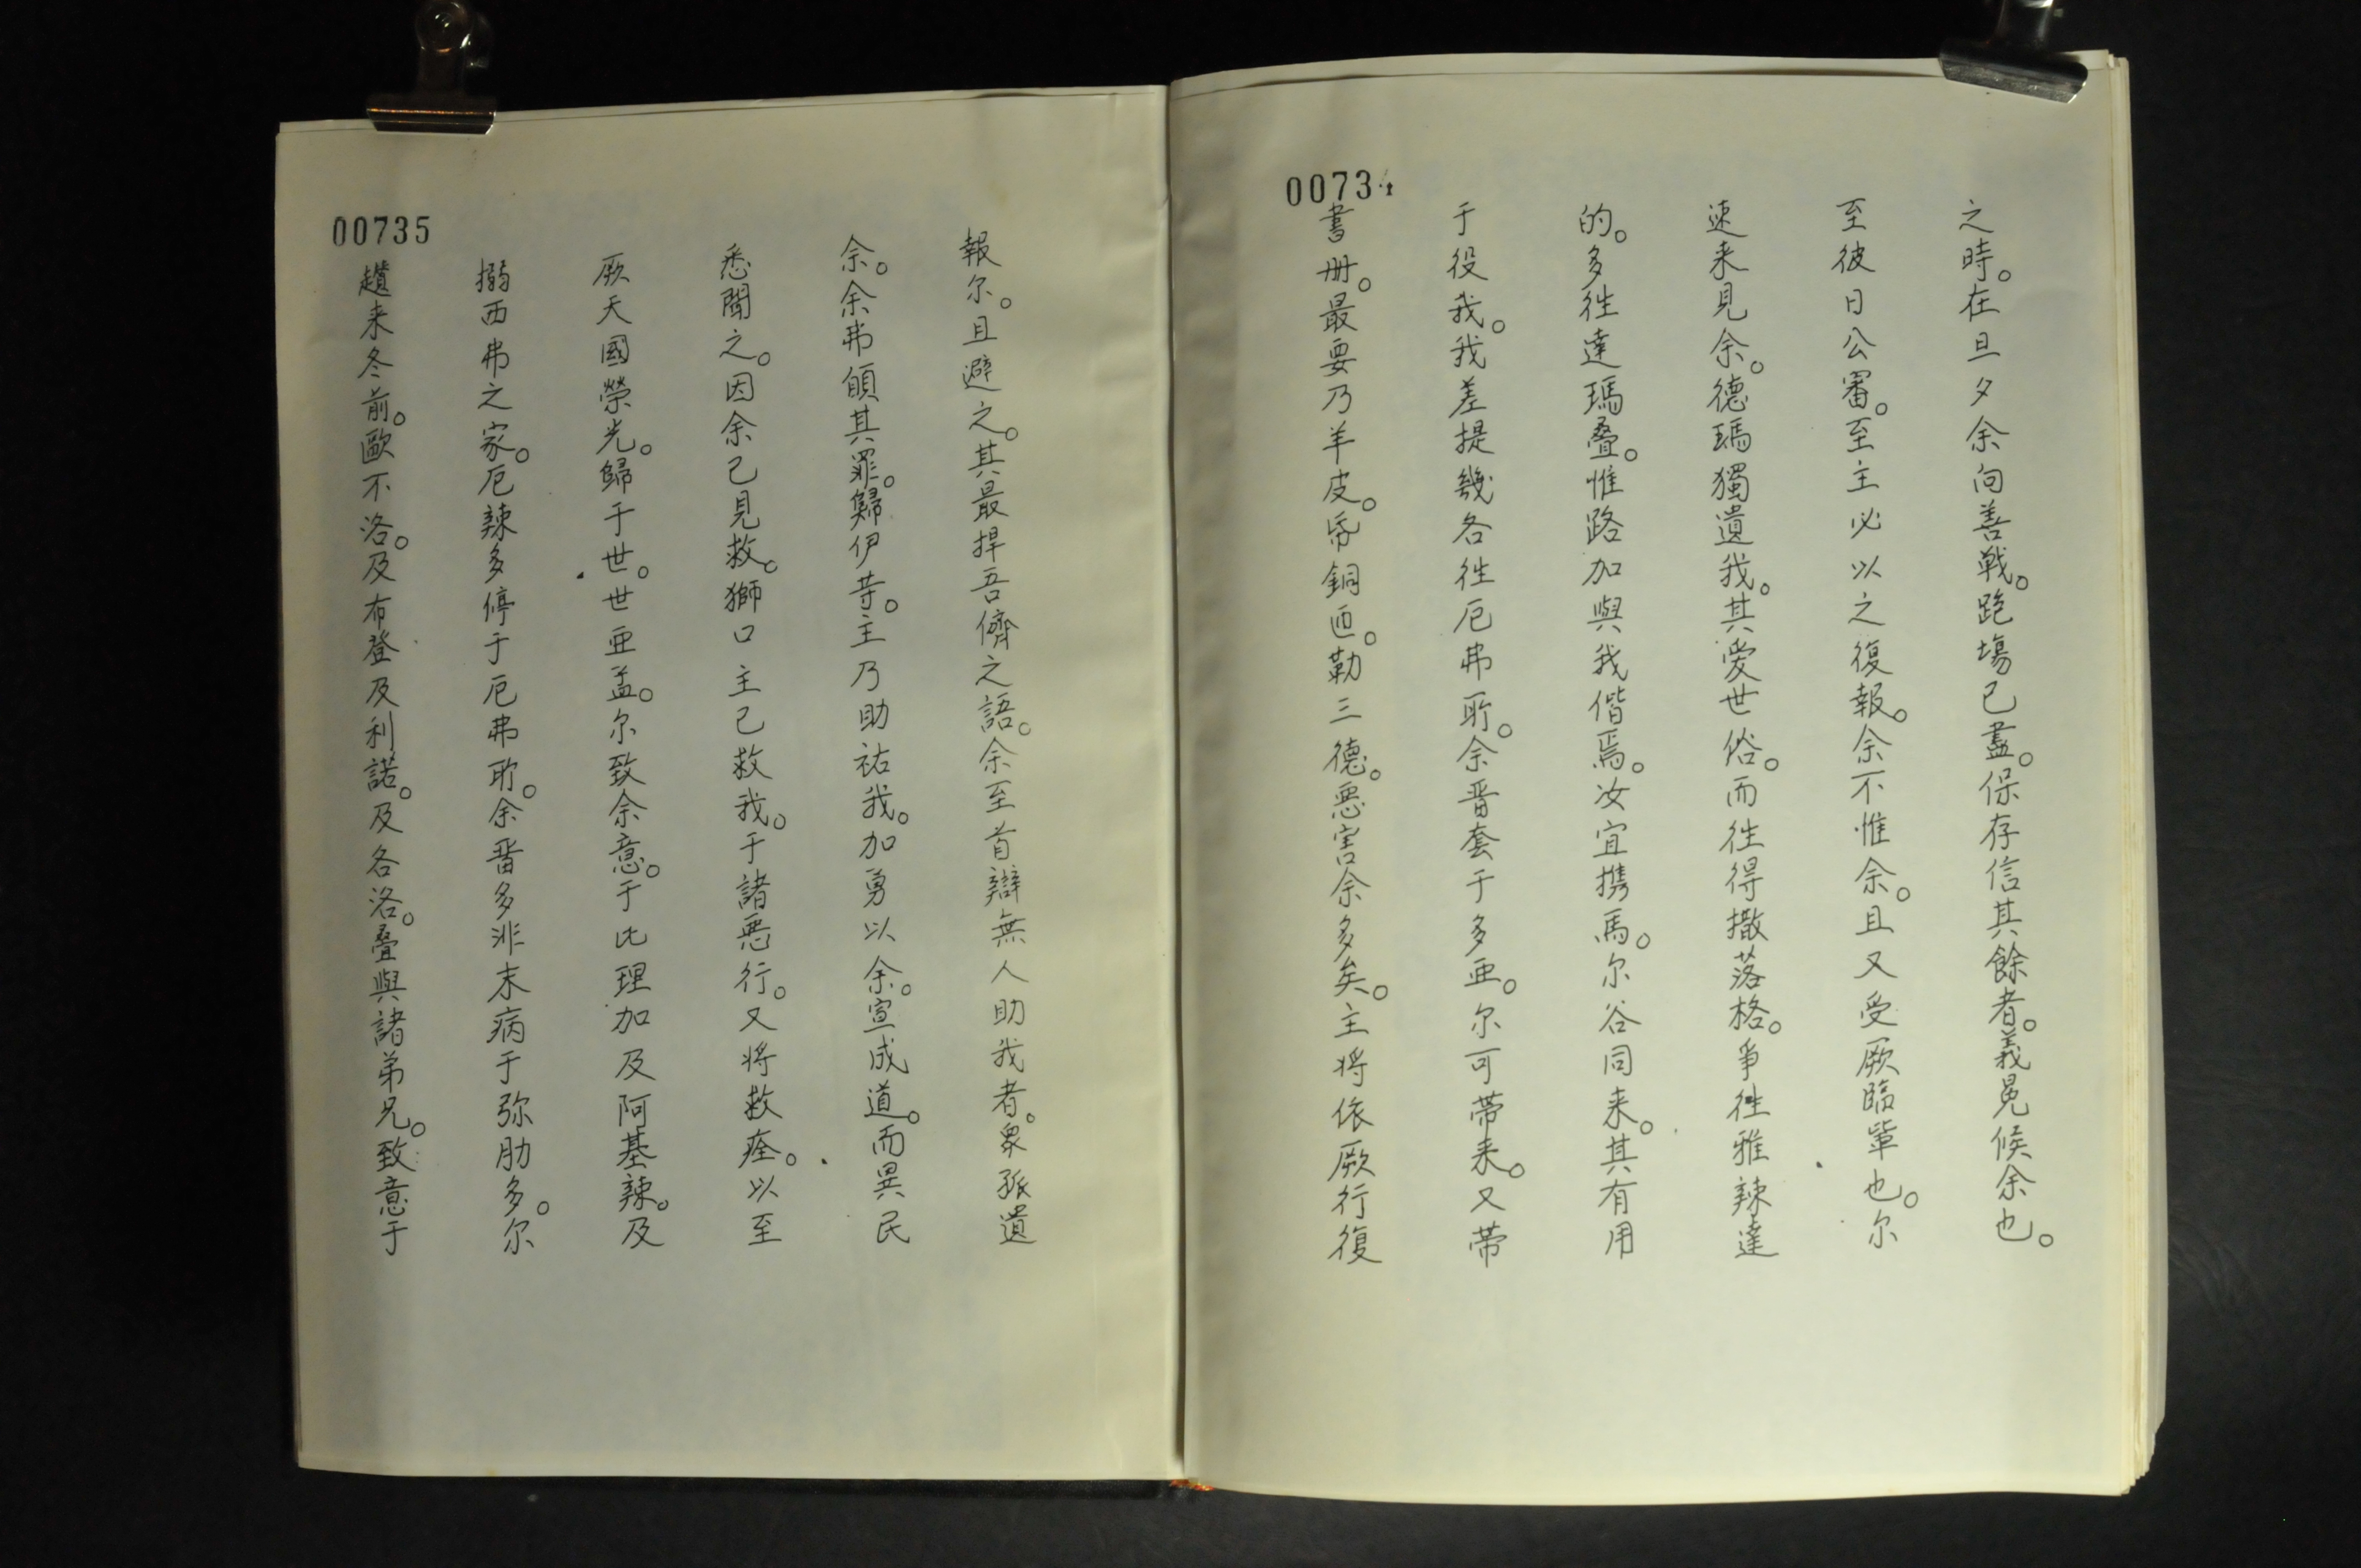 00734
之時。在旦夕余向善戰。跑塲已盡。保存信其餘者。義冕候余也。
至彼日公審。至主必以之復報。余不惟余。且又受厥臨輩也。尔
速来見余。德瑪獨遺我。其愛世俗。而徃得撒落格。爭徃雅辣達
的。多徃達瑪疊。惟路加與我偕焉。汝宜携馬。尔谷同来。其有用
于役我。我差提幾各徃厄弗所。余畨套于多亜。尔可带来。又带
書册。最要乃羊皮。帋銅匠。勒三德。悪害余多矣。主将依厥行復
00735
報尔。且避之。其最捍吾儕之語。余至首辯無人助我者。衆孤遺
余。余弗頠其罪。歸伊䓁。主乃助祐我。加勇以余。宣成道。而異民
悉聞之。因余已見救。獅口主已救我。于諸悪行。又将救痊。以至
厥天國榮光。歸于世。世亜孟。尔致余意。于比理加及阿基辣。及
搦西弗之家。厄辣多停于厄弗所。余畨多非末病于弥肋多。尔
趲来冬前。歐不洛。及布登及利諾。及各洛。疊與諸弟兄。致意于